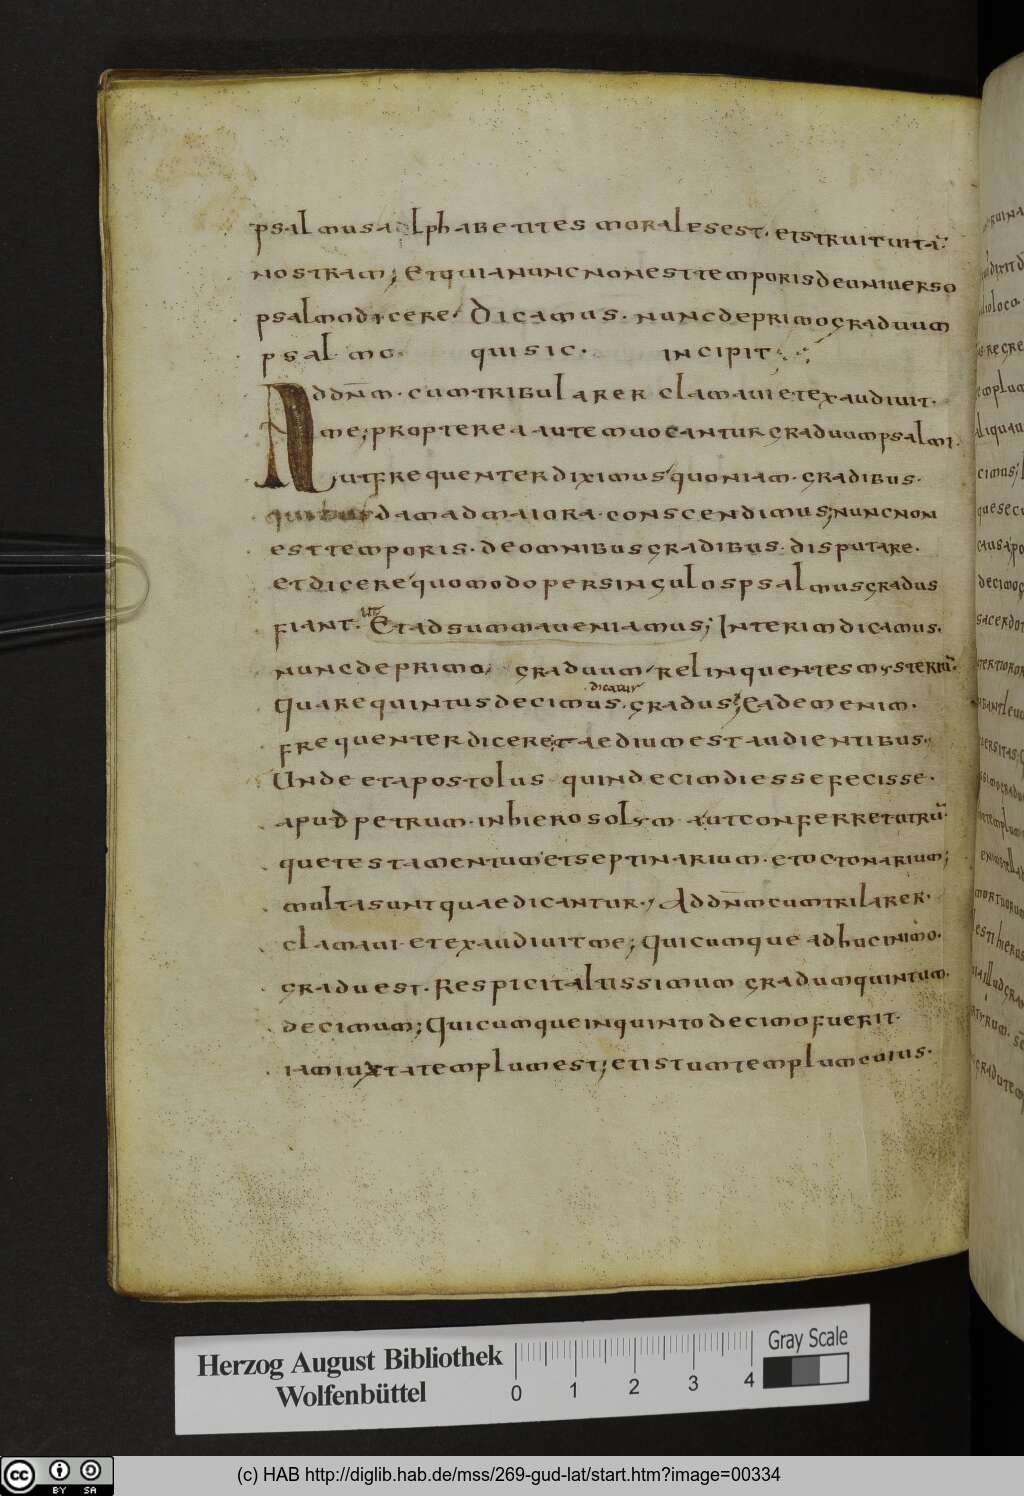 psalmus alphabetites morales est. et struit uitā
nostram; Et quia nunc non est temporis de uniuerso
psalmo dicere. Dicamus. nunc de primo graduum
psalmo. qui sic. incipit
Ad dn̄m. cum tribularer clamaui et exaudiuit.
me; propterea autem uocantur graduum psalmi.
ut frequenter diximus quoniam. gradibus.
quibusdam ad maiora. conscendimus; nunc non
est temporis. de omnibus gradibus. disputare.
et dicere quomodo per singulos psalmus gradus
fiant. ut Et ad summa ueniamus; Interim dicamus.
nunc de primo, graduum relinquentes mysteriū.
Quare quintus decimus. dicatur gradus; Eadem enim.
frequenter dicere et taedium est audientibus.
Unde et apostolus quindecim dies se fecisse.
apud petrum. in hierosolym aut conferret utrū
que testamentum et septinarium. et octonarium;
multa sunt quae dicantur., Ad dn̄m cum trilarer.
clamaui et exaudiuit me; Quicumque adhuc in imo.
gradu est. Respicit altissimum gradum quintum.
decimum; Quicumque in quinto decimo fuerit.
iam iuxta templum est; et istum templum cuius.
Herzog August Bibliothek
Wolfenbüttel
0 1 2 3 4
Gray Scale
cc BY SA
(c) HAB http://diglib.hab.de/mss/269-gud-lat/start.htm?image=00334